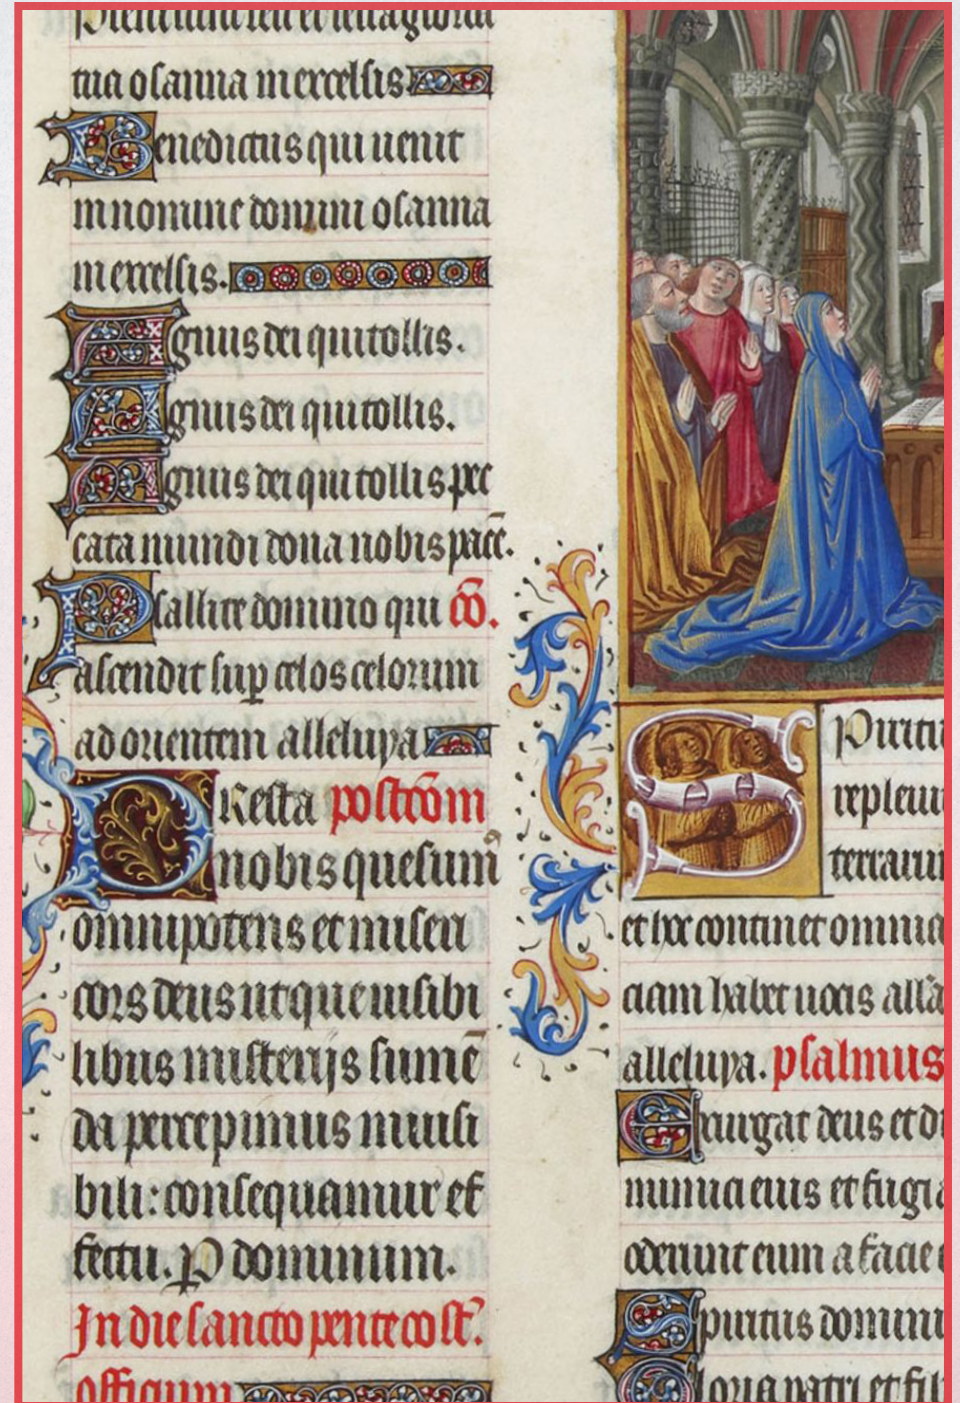 Pleni sunt celi et terra gloria
tua osanna in excelsis
Benedictus qui uenit
in nomine domini osanna
in excelsis.
Agnus dei qui tollis.
Agnus dei qui tollis.
Agnus dei qui tollis pec
cata mundi dona nobis pacē.
Psallite domino qui cō.
ascendit sup̄ celos celorum
ad orientem alleluya
PResta postcōm
nobis quesum̄
omnipotens et miseri
cors deus ut que uisibi
libus misterijs sumē
da percepimus inuisi
bili: consequamur ef
fectu. P dominum.
In die sancto pentecost̄.
officium
Spiritu
repleui
terraru
et hoc continet omnia
ciam habet uocis allā
alleluya. psalmus
Exurgat deus et di
inimici eius et fugia
oderunt eum a facie
Spiritus domini
Gloria patri et fili